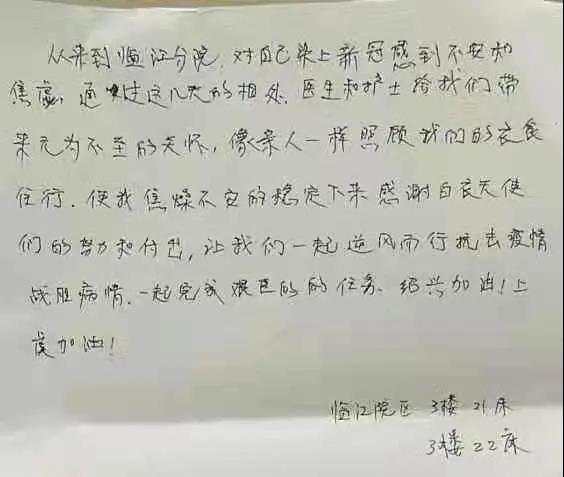 从来到临江分院，对自己染上新冠感到不安和
焦虑，通过这几天的相处，医生和护士给我们带
来无为不至的关怀，像亲人一样照顾我们的衣食
住行．使我焦燥不安的稳定下来感谢白衣天使
们的努力和付出，让我们一起逆风而行抗击疫情
战胜病情．一起完成艰巨的的任务．绍兴加油！上
虞加油！
临江院区 3楼 21床
3楼 22床